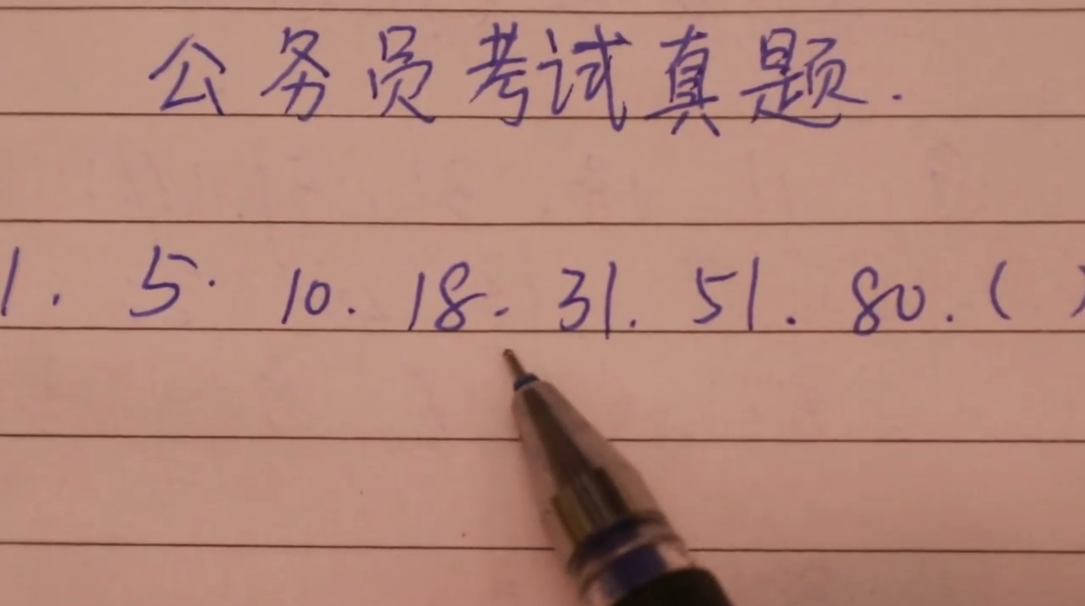 公务员考试真题.
1. 5. 10. 18. 31. 51. 80. ( )